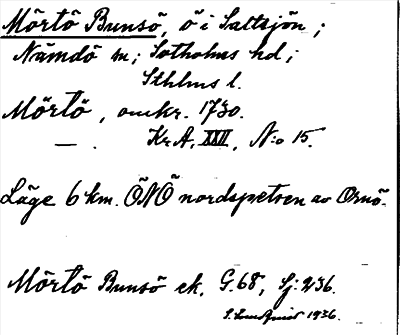 Mörtö Bunsö, ö i Saltsjön;
Nämdö sn; Sotholms hd;
Sthlms l.
Mörtö, omkr. 1730.
— . Kr. A, XXII, N:o 15.
Läge 6 km. ÖNÖ nordspetsen av Ornö.
Mörtö Bunsö ek. G.68, Sj: 236.
S. Lundqvist 1936.